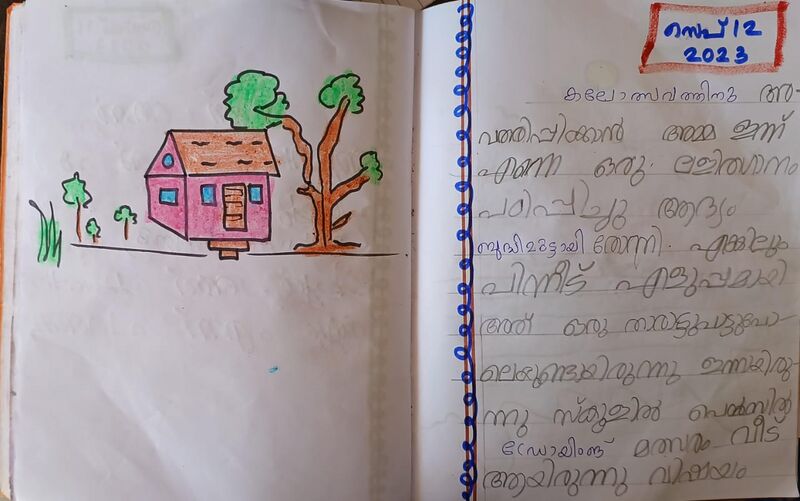 സെപ് 12
2023
കലോത്സവത്തിനു അ-
വതരിപ്പിക്കാൻ അമ്മ ഇന്ന്
എന്നെ ഒരു ലളിതഗാനം
പഠിപ്പിച്ചു ആദ്യം
ബുദ്ധിമുട്ടായി തോന്നി. എങ്കിലും
പിന്നീട് എളുപ്പമായി
അത് ഒരു താരാട്ടുപാട്ടുപോ-
ലെയുണ്ടായിരുന്നു ഇന്നായിരു-
ന്നു സ്കൂളിൽ പെൻസിൽ
ഡ്രോയിംങ് മത്സരം വീട്
ആയിരുന്നു വിഷയം